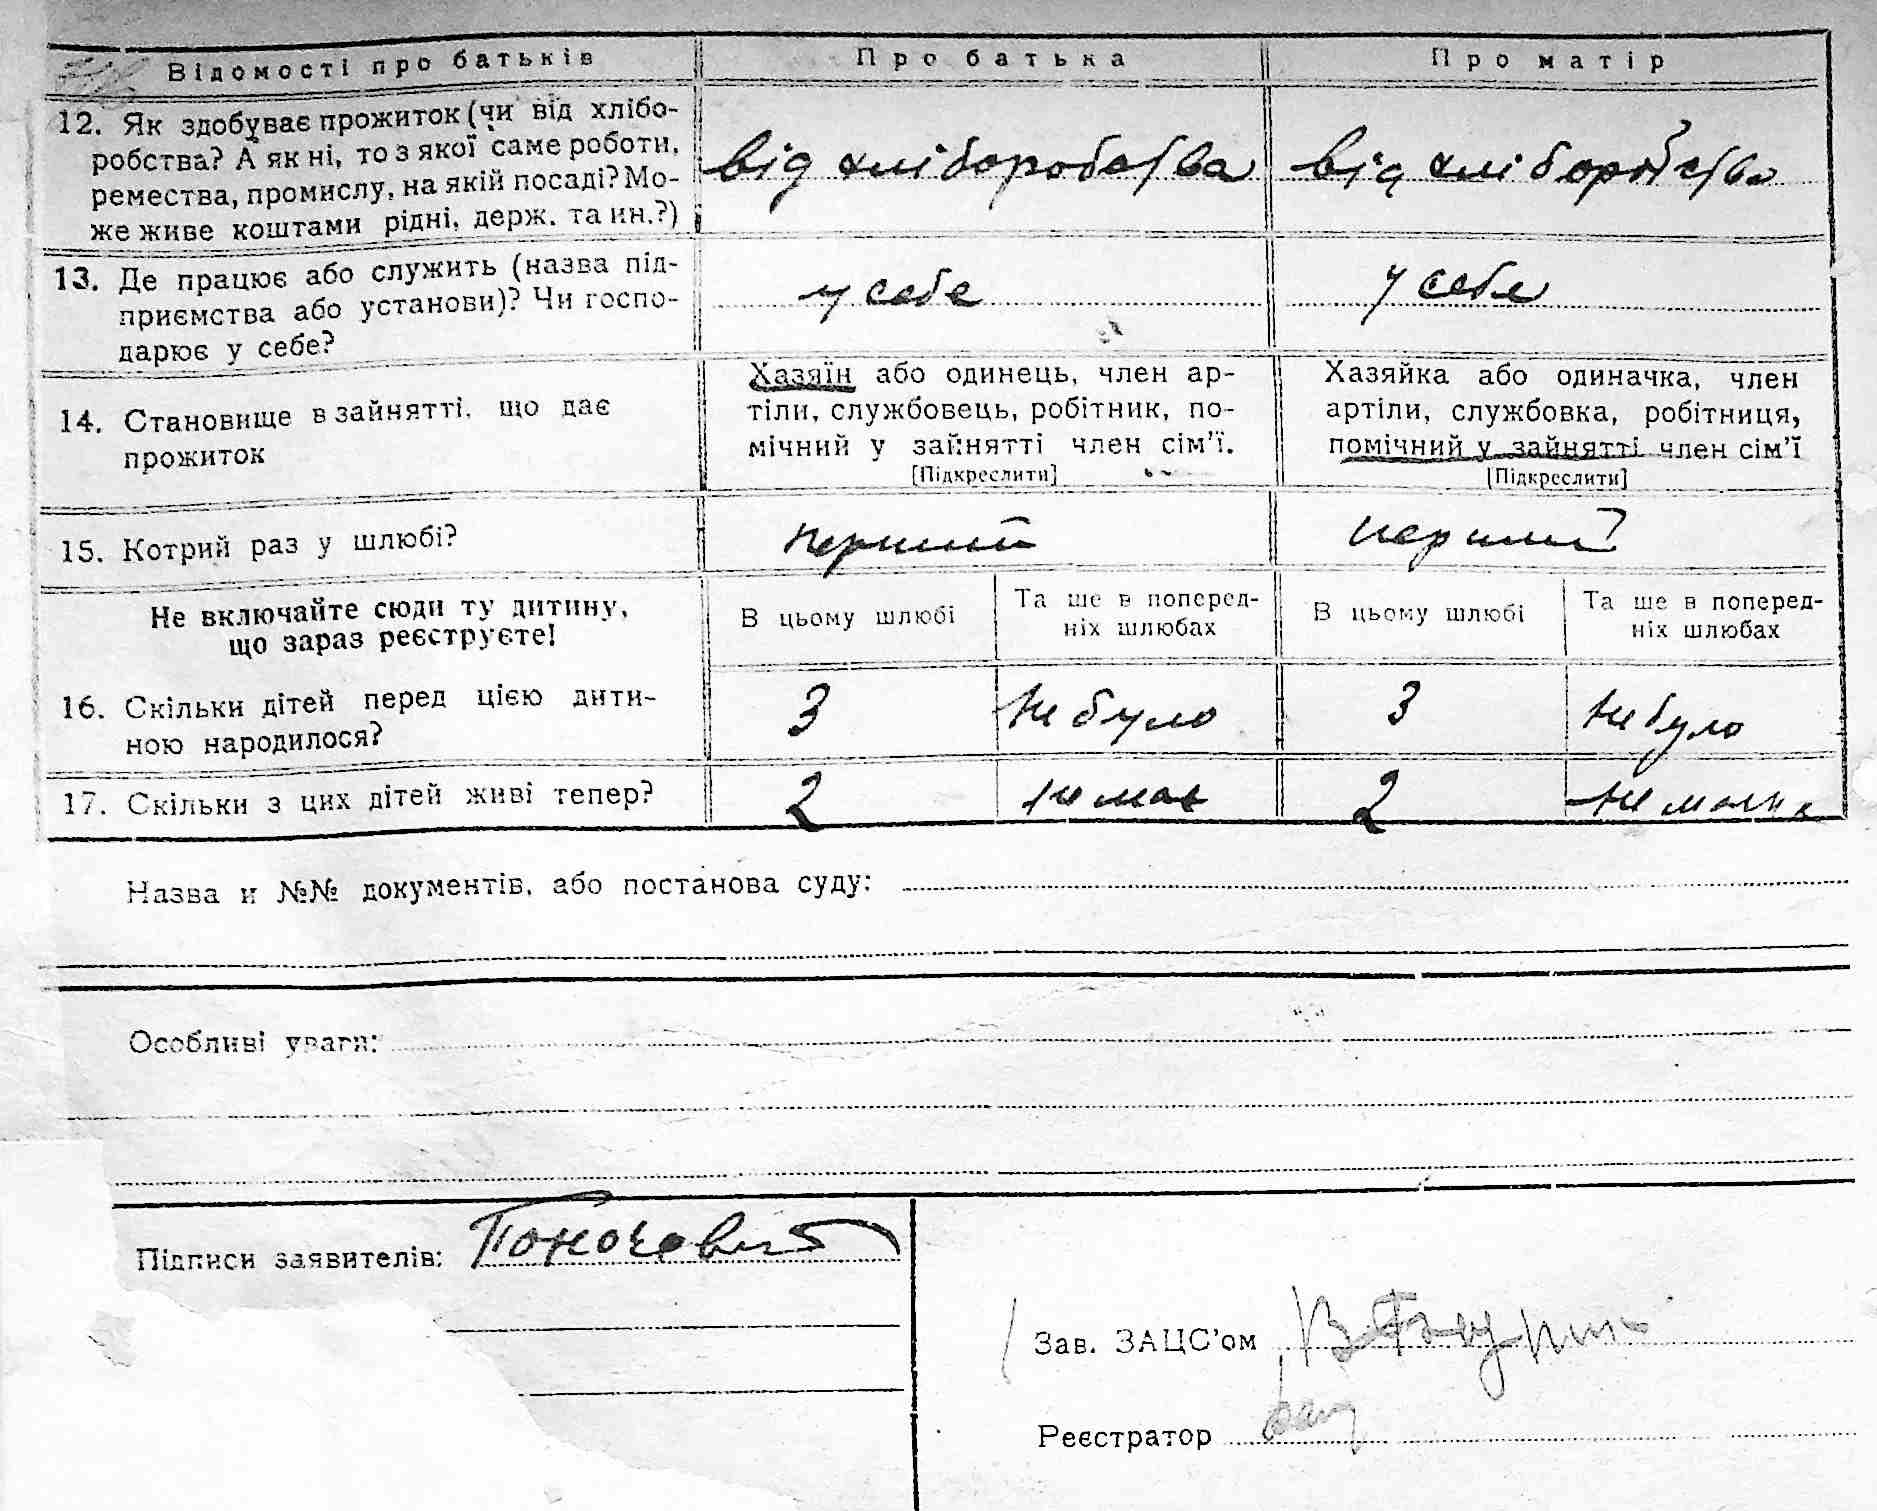 Відомості про батьків Про батька Про матір
12. Як здобуває прожиток (чи від хлібо-
робства? А як ні, то з якої саме роботи,
ремества, промислу, на якій посаді? Мо-
же живе коштами рідні, держ. та ин.?)
від хліборобства від хліборобства
13. Де працює або служить (назва під-
приємства або установи)? Чи госпо-
дарює у себе?
у себе у себе
14. Становище в зайнятті, що дає
прожиток
Хазяїн або одинець, член ар-
тіли, службовець, робітник, по-
мічний у зайнятті член сім'ї.
[Підкреслити]
Хазяйка або одиначка, член
артіли, службовка, робітниця,
помічний у зайнятті член сім'ї
[Підкреслити]
15. Котрий раз у шлюбі? перший перший
Не включайте сюди ту дитину,
що зараз реєструєте!
В цьому шлюбі
Та ше в поперед-
ніх шлюбах
В цьому шлюбі
Та ше в поперед-
ніх шлюбах
16. Скільки дітей перед цією дити-
ною народилося?
3 не було 3 не було
17. Скільки з цих дітей живі тепер? 2 немає 2
Назва и №№ документів, або постанова суду:
Особливі уваги:
Підписи заявителів:
Зав. ЗАЦС'ом
Реєстратор